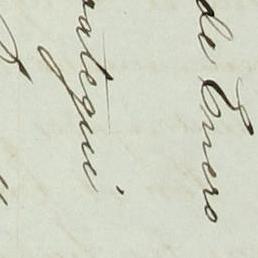 de Enero
rategui